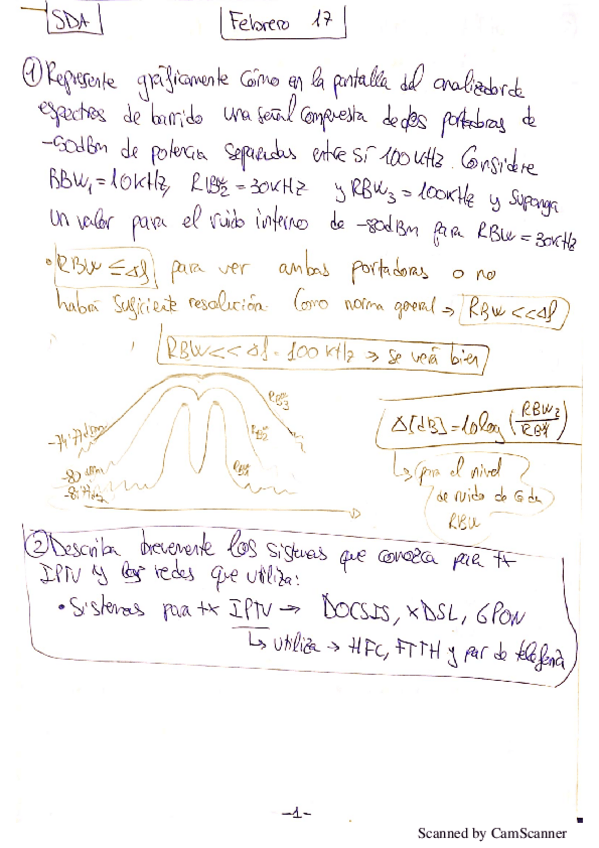 SDA
Febrero 17
① Represente gráficamente cómo en la pantalla del analizador de
espectros de barrido una señal compuesta de dos portadoras de
-50dBm de potencia separadas entre sí 100 kHz. Considere
RBW₁ = 10kHz, RBW₂ = 30kHz y RBW₃ = 100kHz y suponga
un valor para el ruido interno de -80dBm para RBW = 30kHz
• RBW ≤ Δf para ver ambas portadoras o no
habrá suficiente resolución. Como norma general → RBW << Δf
RBW << Δf = 100 kHz → se verá bien
RBW₃
-74'77dBm
Δ[dB] = 10log (RBW₂/RBW₁)
RBW₂
-80 dBm
RBW₁
↳ para el nivel
de ruido de
RBW
② Describa brevemente los sistemas que conozca para tx
IPTV y las redes que utiliza:
• Sistemas para tx IPTV → DOCSIS, xDSL, GPON
↳ utiliza → HFC, FTTH y par de telefonía
-1-
Scanned by CamScanner